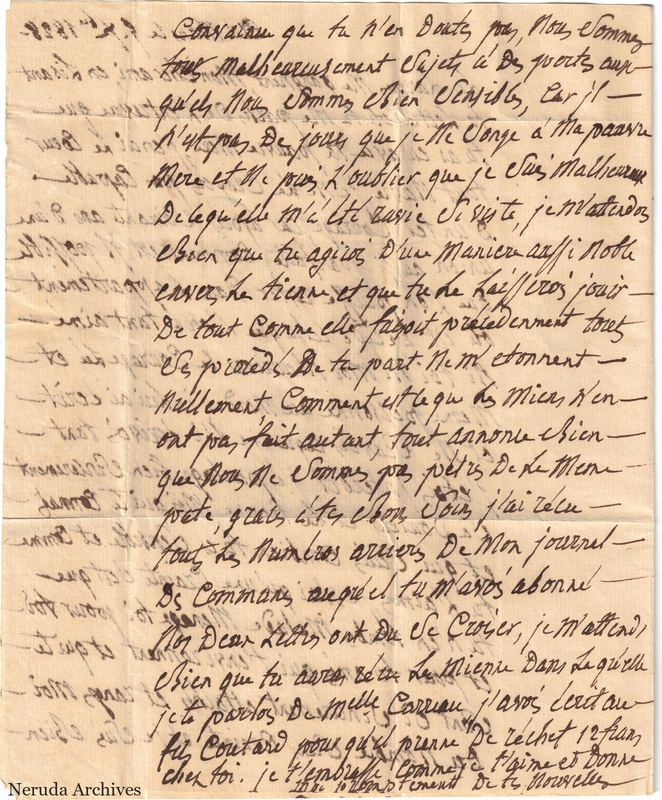 Convaincu que tu n'en Doutes pas, Nous Sommes
tous Malheureusement Sujets à Des pertes aux
qu'els Nous Sommes Bien Sensibles, Car jl —
N'est pas De jours que je Ne Songe à Ma pauvre
Mere et Ne puis L'oublier que je Suis Malheureux
De le qu'elle m'à été ravie Si viste, je m'attendois
Bien que tu agirois D'une Maniere aussi Noble
envers La tienne et que tu La Laisserois jouir —
De tout Comme elle faisoit précédemment tous
Ses procédés De ta part Ne m'etonnent —
Nullement Comment est ce que Les Miens N'en —
ont pas fait autant, tout annonce Bien —
que Nous Ne Sommes pas pétris De La Meme —
pate, grace à tes Bons Soins j'ai récu —
tous Les Numéros ariérés De Mon journel —
Des Communes auqu'el tu m'avois abonné —
Nos Deux Lettres ont Du Se Croiser, je m'attends
Bien que tu auras récu La Mienne Dans La qu'elle
je te parlos De Melle Carreau j'avois écrit au —
fr Coutard pour qu'il prenne De réchet 12 frans
chez toi. je t'embrasse Comme je t'aime et Donne
De tes Nouvelles
Neruda Archives